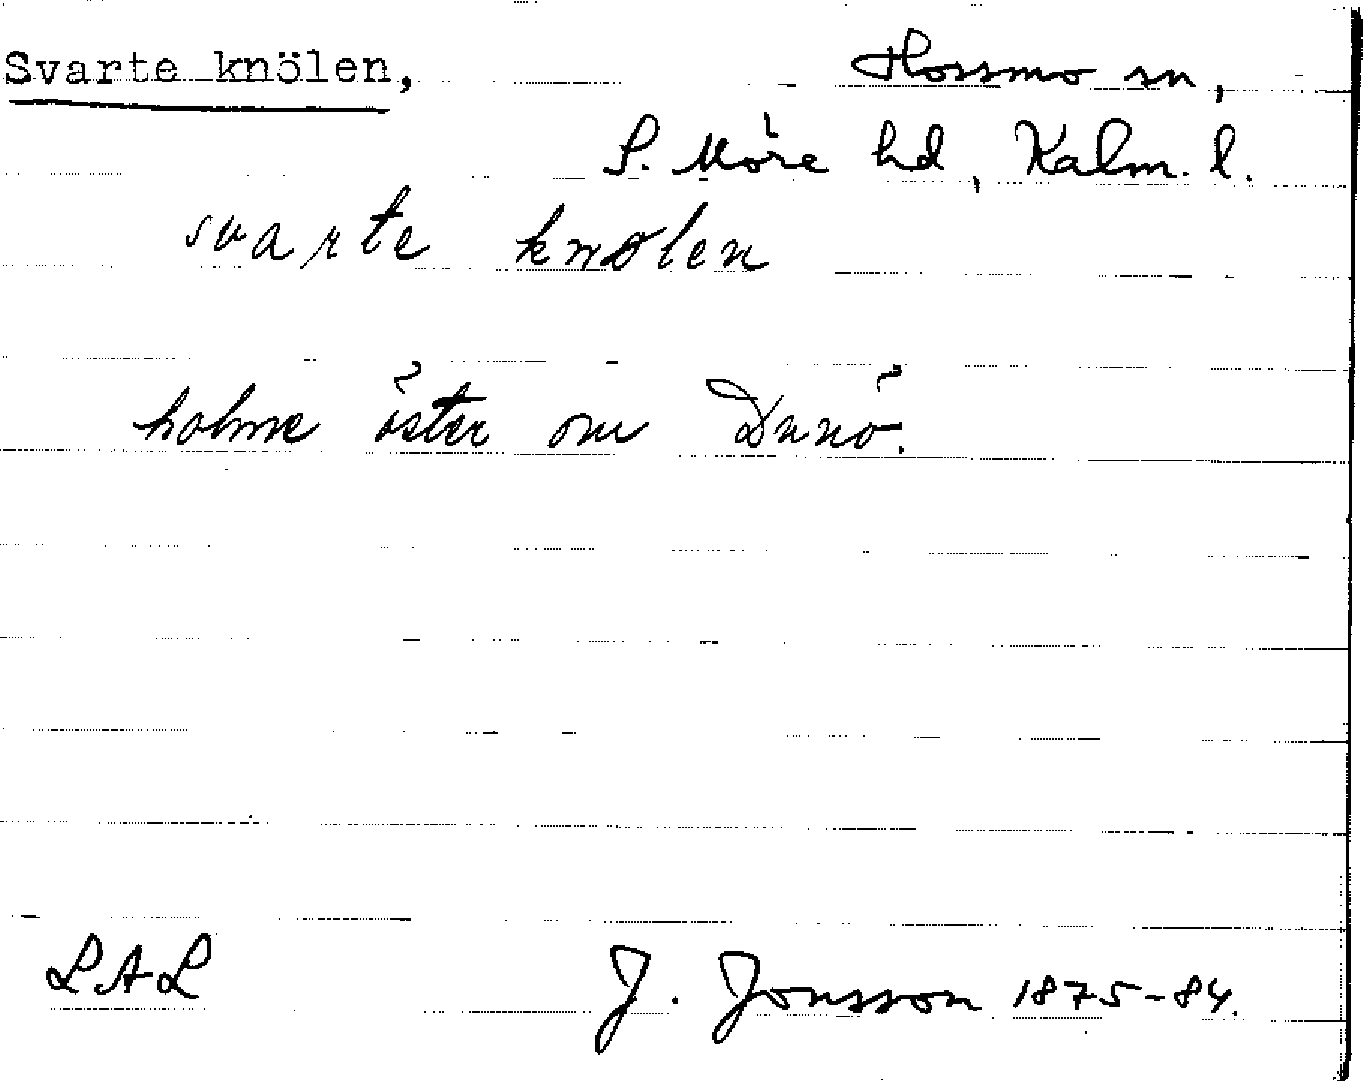 Svarte knölen, Hossmo sn,
S. Möre hd, Kalm. l.
svarte knølen
holme öster om Dunö.
LAL J. Jonsson 1875-84.